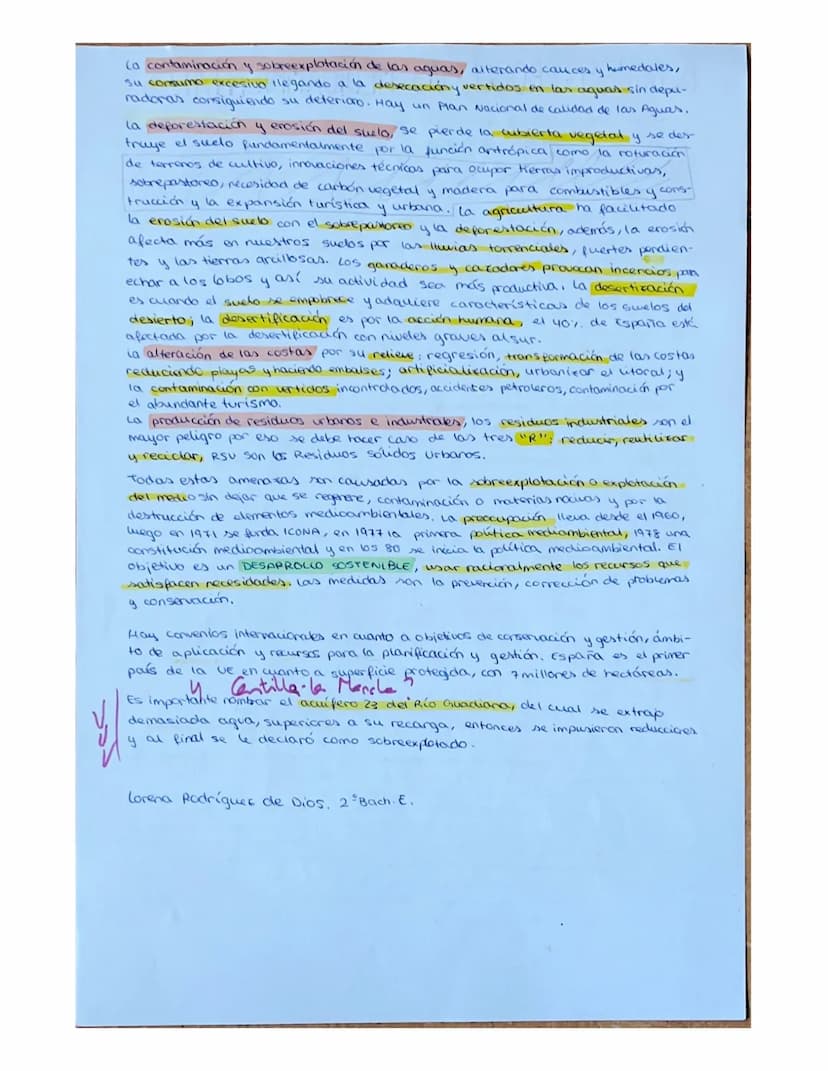 La contaminación y sobreexplotación de las aguas, alterando cauces y humedales,
su consumo excesivo llegando a la desecación y vertidos en las aguas sin depu-
radoras consiguiendo su deterioro. Hay un Plan Nacional de calidad de las Aguas.
La deforestación y erosión del suelo, se pierde la cubierta vegetal y se des-
truye el suelo fundamentalmente por la función antrópica como la roturación
de terrenos de cultivo, innovaciones técnicas para ocupar tierras improductivas,
sobrepastoreo, necesidad de carbón vegetal y madera para combustibles y cons-
trucción y la expansión turística y urbana. La agricultura ha facilitado
la erosión del suelo con el sobrepastoreo y la deforestación, además, la erosión
afecta más en nuestros suelos por las lluvias torrenciales, fuertes pendien-
tes y las tierras arcillosas. Los ganaderos y cazadores provocan incencios para
echar a los lobos y así su actividad sea más productiva. La desertización
es cuando el suelo se empobrece y adquiere características de los suelos del
desierto; la desertificación es por la acción humana, el 40% de España está
afectada por la desertificación con niveles graves al sur.
La alteración de las costas por su relieve; regresión, transformación de las costas
reduciendo playas y haciendo embalses; artificialización, urbanizar el litoral; y
la contaminación con vertidos incontrolados, accidentes petroleros, contaminación por
el abundante turismo.
La producción de residuos urbanos e industriales, los residuos industriales son el
mayor peligro por eso se debe hacer caso de las tres "R": reducir, reutilizar
y reciclar, RSU son los Residuos Sólidos Urbanos.
Todas estas amenazas son causadas por la sobreexplotación o explotación
del medio sin dejar que se regenere, contaminación o materias nocivas y por la
destrucción de elementos medioambientales. La preocupación lleva desde el 1960,
luego en 1971 se funda ICONA, en 1977 la primera política mediambiental, 1978 una
constitución medioambiental y en los 80 se inicia la política medioambiental. El
objetivo es un DESARROLLO SOSTENIBLE, usar racionalmente los recursos que
satisfacen necesidades. Las medidas son la prevención, corrección de problemas
y conservación.
Hay convenios internacionales en cuanto a objetivos de conservación y gestión, ámbi-
to de aplicación y recursos para la planificación y gestión. España es el primer
país de la UE en cuanto a superficie protegida, con 7 millones de hectáreas.
y Castilla-la Mancha
Es importante nombrar el acuífero 23 del Río Guadiana, del cual se extrajo
demasiada agua, superiores a su recarga, entonces se impusieron reducciones
y al final se le declaró como sobreexplotado.
Lorena Rodríguez de Dios. 2º Bach. E.